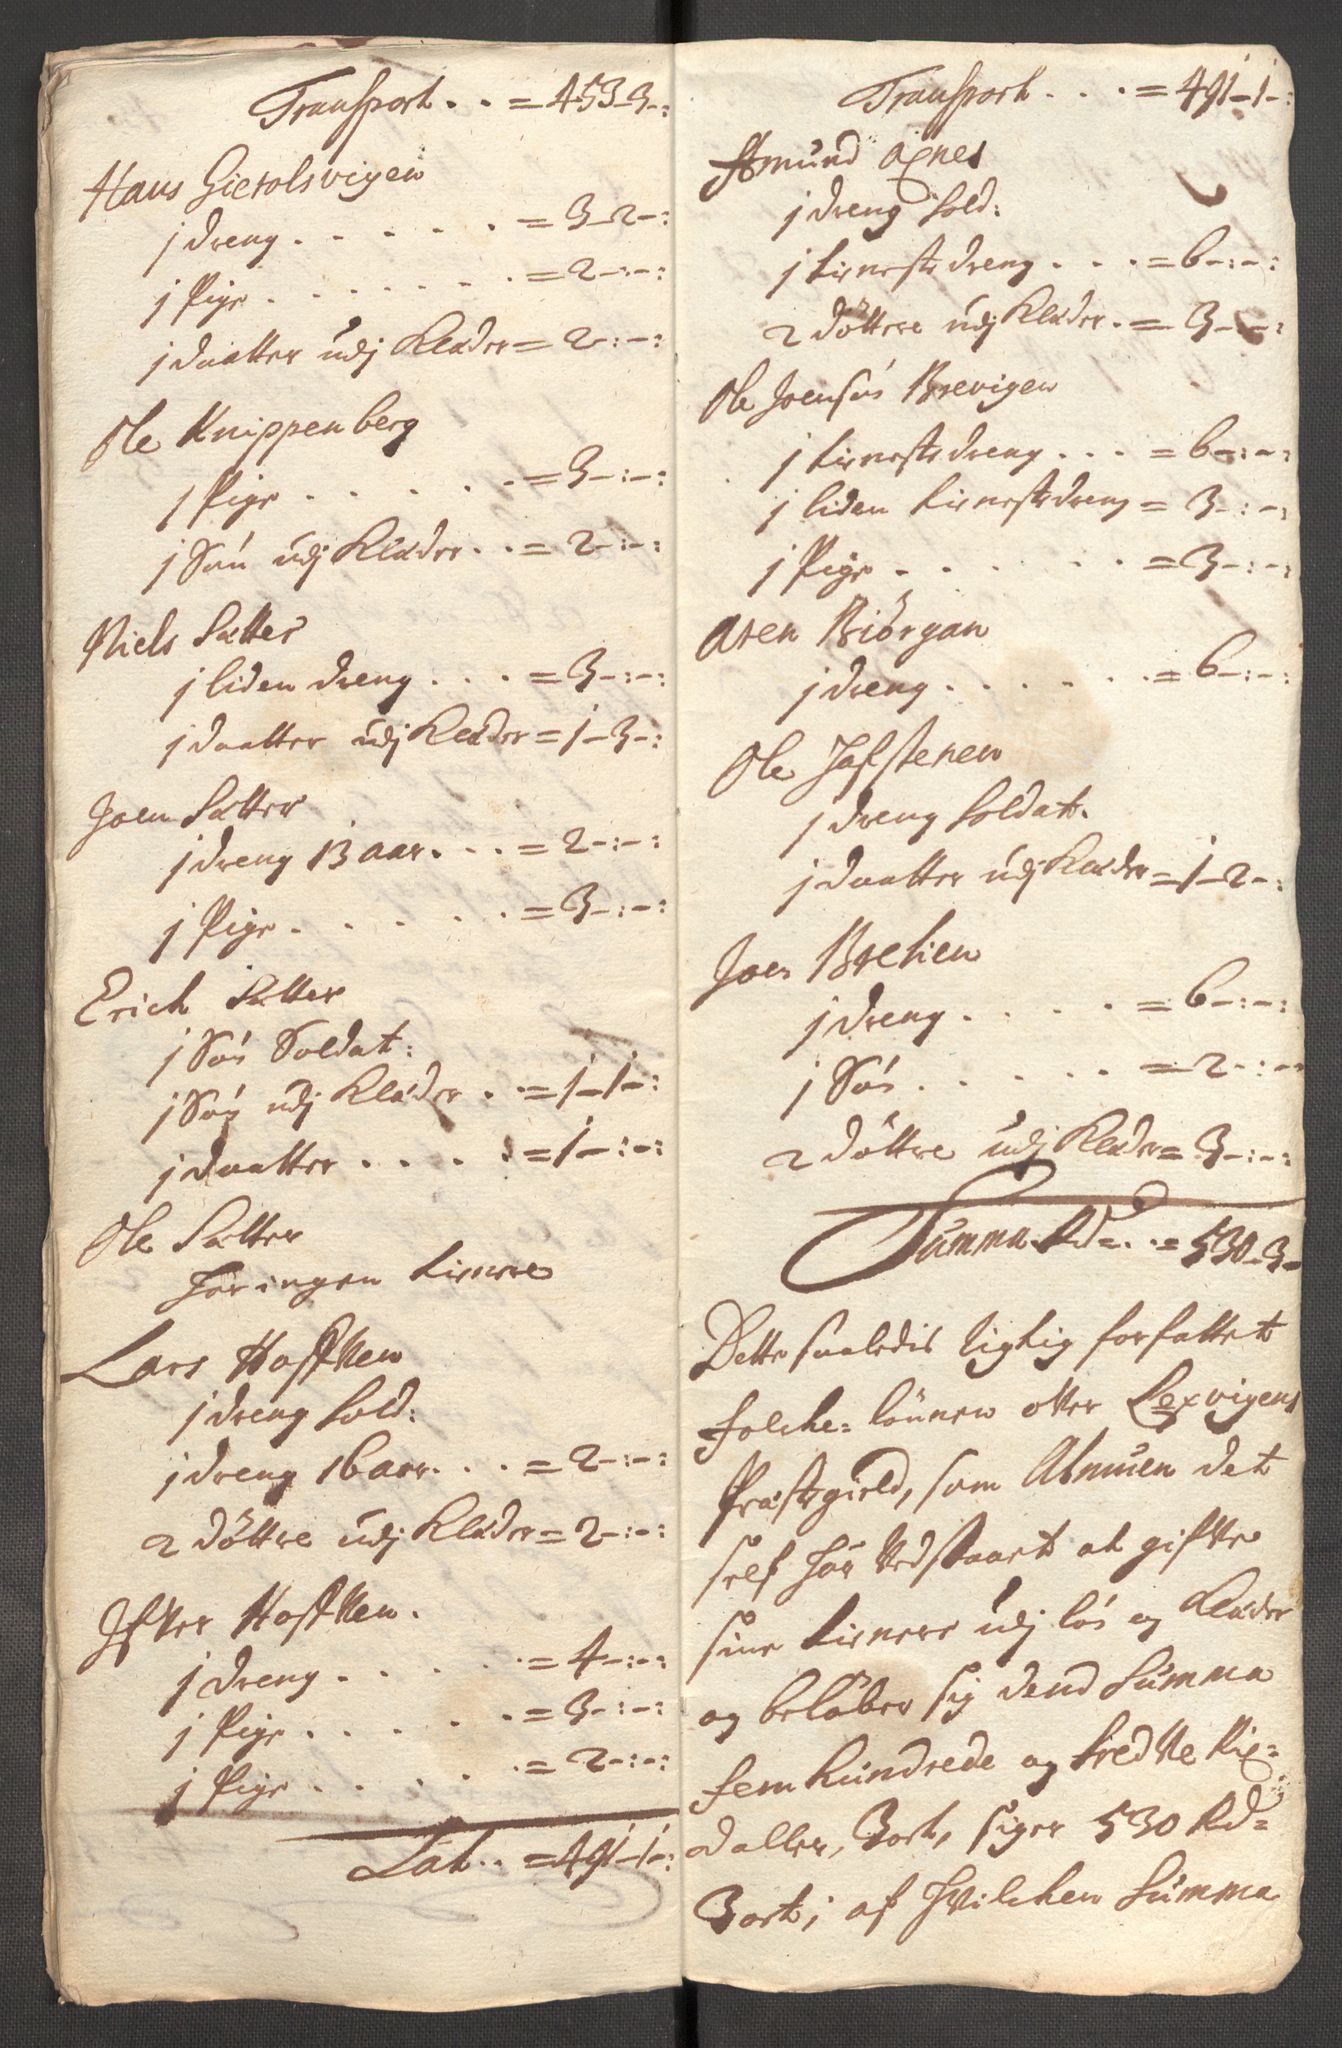 Transport . . = 453-3-:
Hans Gierolsvigen
j dreng . . . . . = 3-2-:
j Pige . . . . . . = 2-:-:
j daatter udj Klæder = 2-:-:
Ole Knippenberg
j Pige . . . . . = 3-:-:
j Søn udj Klæder . . = 2-:-:
Niels Sætter
j liden dreng . . . = 3-:-:
j daatter udj Klæder = j-3-:
Joen Sætter
j dreng 13 aar . . . = 2-:-:
j Pige . . . . . = 3-:-:
Erich Sætter
j Søn Soldat:
j Søn udj Klæder . . = j-j-:
j daatter . . . . = j-:-:
Ole Sætter
Har ingen tienere
Lars Hoffven
j dreng Sold:
j dreng 16 aar . . . = 2-:-:
2 döttre udj Klæder = 2-:-:
Ifver Hoffven.
j dreng . . . . . = 4-:-:
j Pige . . . . . = 3-:-:
j Pige . . . . . = 2-:-:
Lat . . = 491-j-:
Transport . . . = 491-j-:
Amund Axnes
j dreng Sold:
j tienestedreng . . . = 6-:-:
2 döttere udj Klæder . = 3-:-:
Ole Joensøn Brevigen
j tienestedreng . . . = 6-:-:
j liden tienestedreng = 3-:-:
j Pige . . . . . . = 3-:-:
Aren Biörgan
j dreng . . . . . . = 6-:-:
Ole Hafstenen
j dreng Soldat.
j daatter udj Klæder = j-2-:
Joen Brehien
j dreng . . . . . = 6-:-:
j Søn . . . . . = 2-:-:
2 döttre udj Klæder = 3-:-:
Summa Rd . . = 530-3-
Dette saaledis rigtig forfattet
folche-lønnen ofver Lexvigens
Præstegield, som Almuen det
self har vedstaaet at gifve
sine tienere udj løn og Klæder
og beløber sig dend Summa
fem hundrede og tredive Rix-
daller, 3 ort, siger 530 Rd-
3 ort; af hvilchen Summa